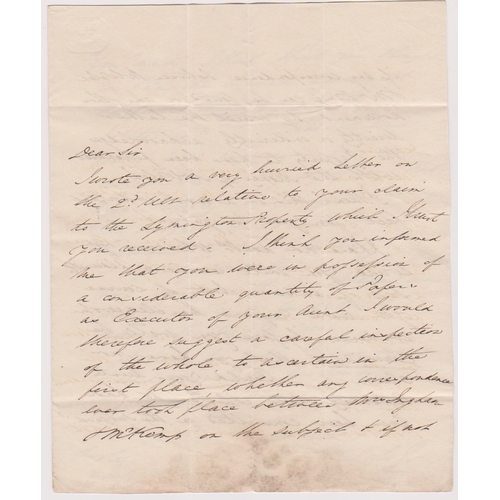 Dear Sir
I wrote you a very hurried Letter on
the 2d. Ult relative to your claim
to the Lymington Property which I trust
you received. I think you informed
me that you were in possession of
a considerable quantity of Papers
as Executor of your Aunt I would
therefore suggest a careful inspection
of the whole, to ascertain in the
first place whether any correspondence
ever took place between Mrs Ingham
& Mr Kemp on the subject & if not